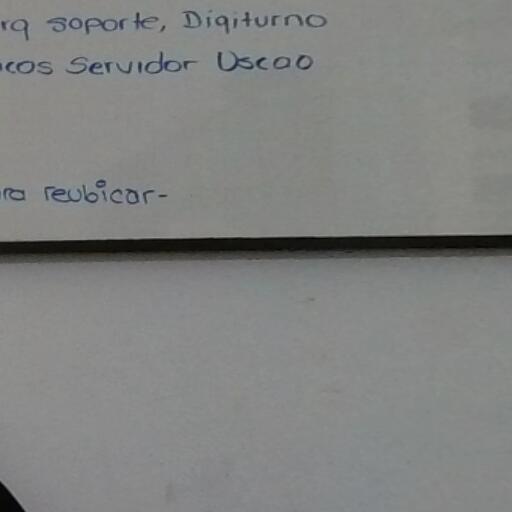 rq soporte, Digiturno
icos Servidor Uscao
ra reubicar-